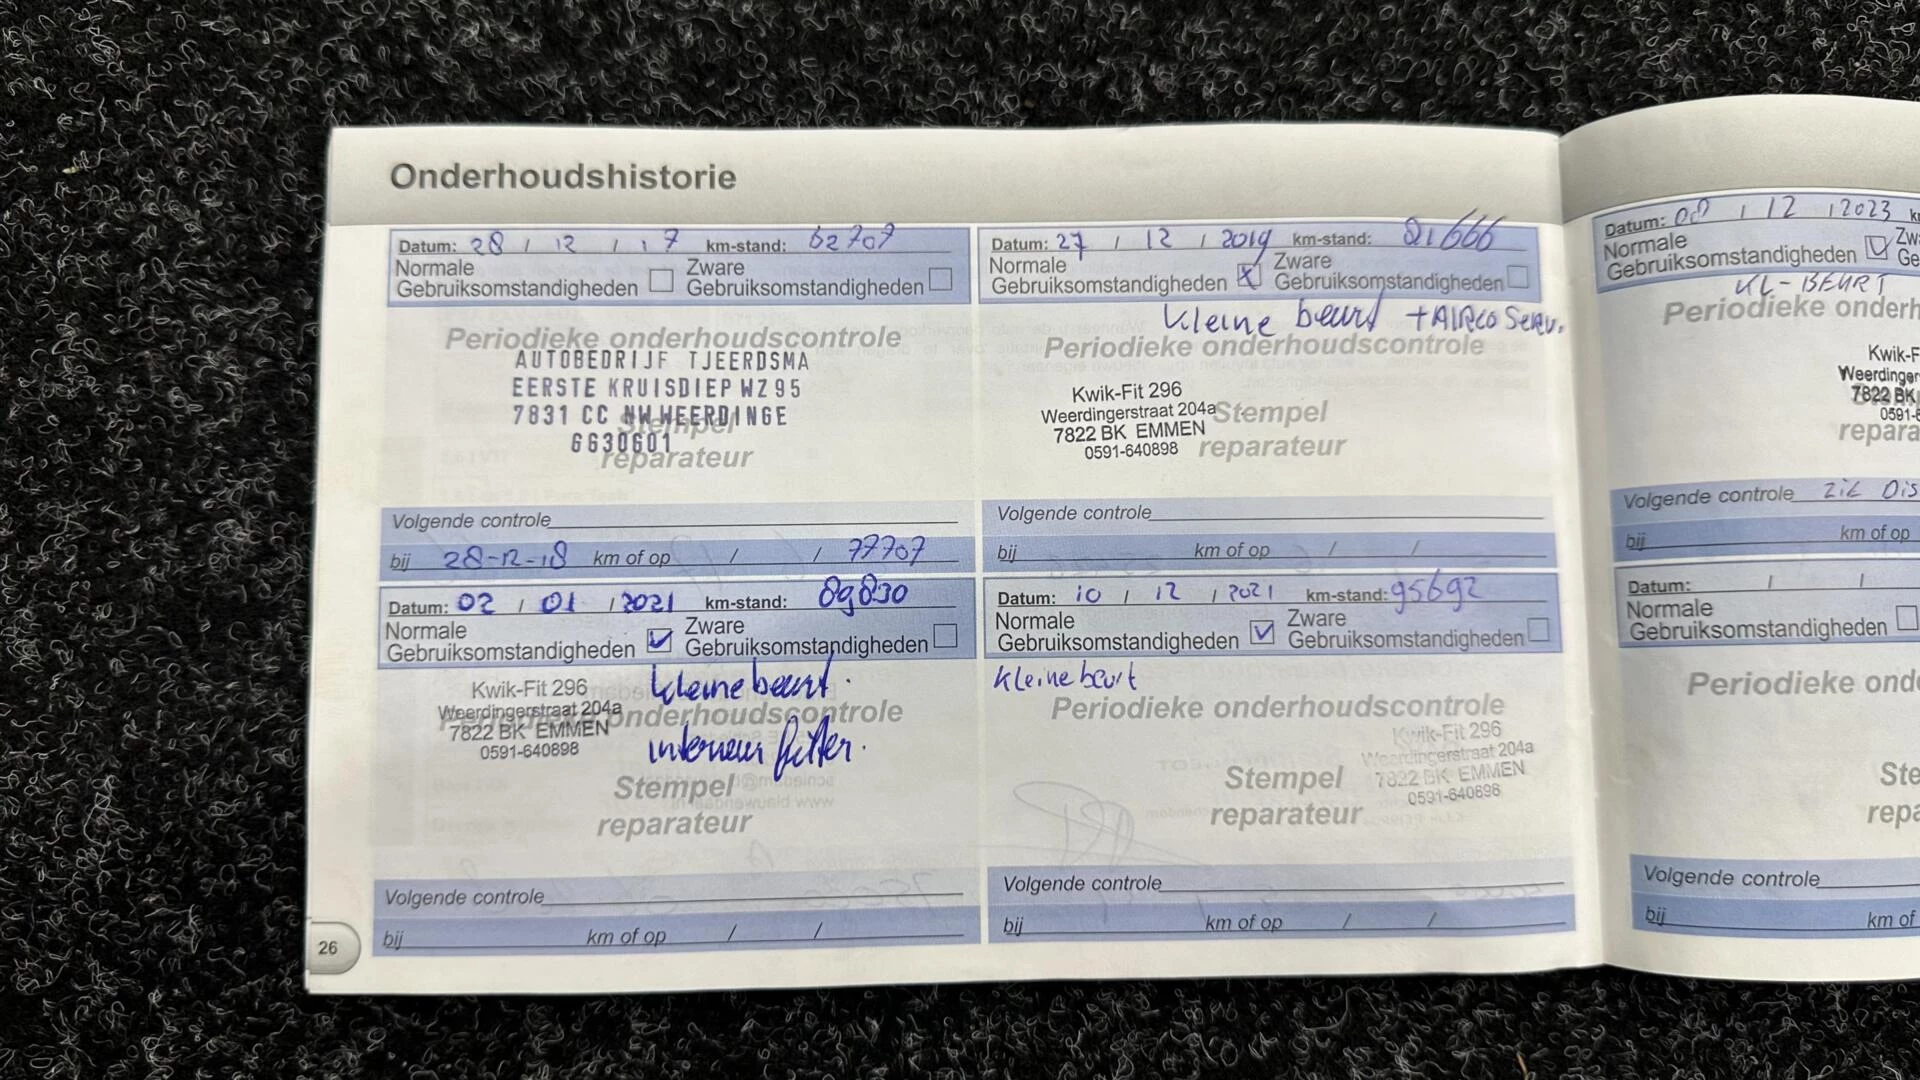 Onderhoudshistorie
Datum: 28 / 12 / 17 km-stand: 62707
Normale Gebruiksomstandigheden Zware Gebruiksomstandigheden
Periodieke onderhoudscontrole
AUTOBEDRIJF TJEERDSMA
EERSTE KRUISDIEP WZ 95
7831 CC NW.WEERDINGE
6630601
Stempel
reparateur
Volgende controle
bij 28-12-18 km of op / / 77707
Datum: 27 / 12 / 2019 km-stand: 81666
Normale Gebruiksomstandigheden x Zware Gebruiksomstandigheden
Kleine beurt + AIRCO SERV.
Periodieke onderhoudscontrole
Kwik-Fit 296
Weerdingerstraat 204a
7822 BK EMMEN
0591-640898
Stempel
reparateur
Volgende controle
bij km of op / /
Datum: 02 / 01 / 2021 km-stand: 89830
Normale Gebruiksomstandigheden Zware Gebruiksomstandigheden
Kleine beurt.
Kwik-Fit 296
Weerdingerstraat 204a
7822 BK EMMEN
0591-640898
Periodieke onderhoudscontrole
interieur filter.
Stempel
reparateur
Volgende controle
bij km of op / /
Datum: 10 / 12 / 2021 km-stand: 95692
Normale Gebruiksomstandigheden Zware Gebruiksomstandigheden
Kleine beurt
Periodieke onderhoudscontrole
Kwik-Fit 296
Weerdingerstraat 204a
7822 BK EMMEN
0591-640898
Stempel
reparateur
Volgende controle
bij km of op / /
26
Datum: / 12 / 2023 k
Normale Zw
Gebruiksomstandigheden Ge
KL-BEURT
Periodieke onderh
Kwik-F
Weerdinger
7822 BK
0591-6
repara
Volgende controle ZIE DIS
bij km of op
Datum: / /
Normale
Gebruiksomstandigheden
Periodieke ond
Ste
repa
Volgende controle
bij km of